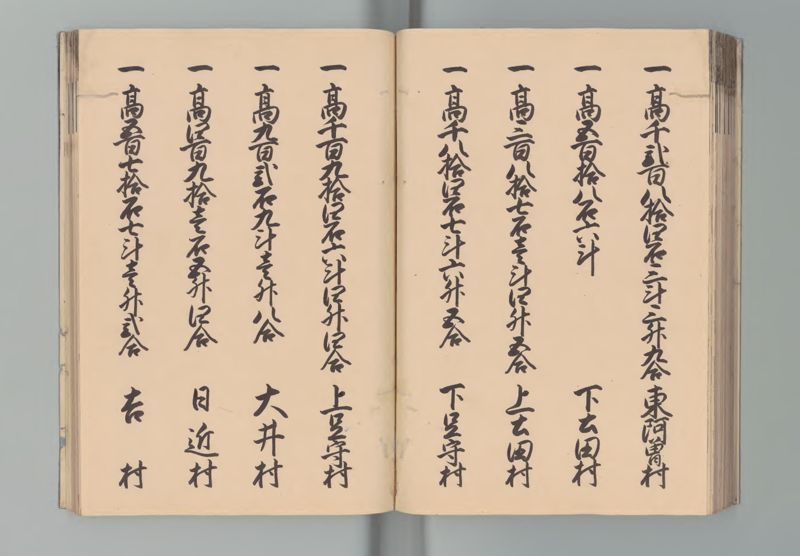 一 高千弐百八拾四石二斗二升九合 東阿曽村
一 高五百拾八石六斗 下土田村
一 高三百八拾七石壱斗四升五合 上土田村
一 高千八拾四石七斗六升五合 下足守村
一 高千百九拾四石六斗四升四合 上足守村
一 高九百弐石九斗壱升八合 大井村
一 高四百九拾壱石五升四合 日近村
一 高五百七拾石七斗壱升弐合 吉村